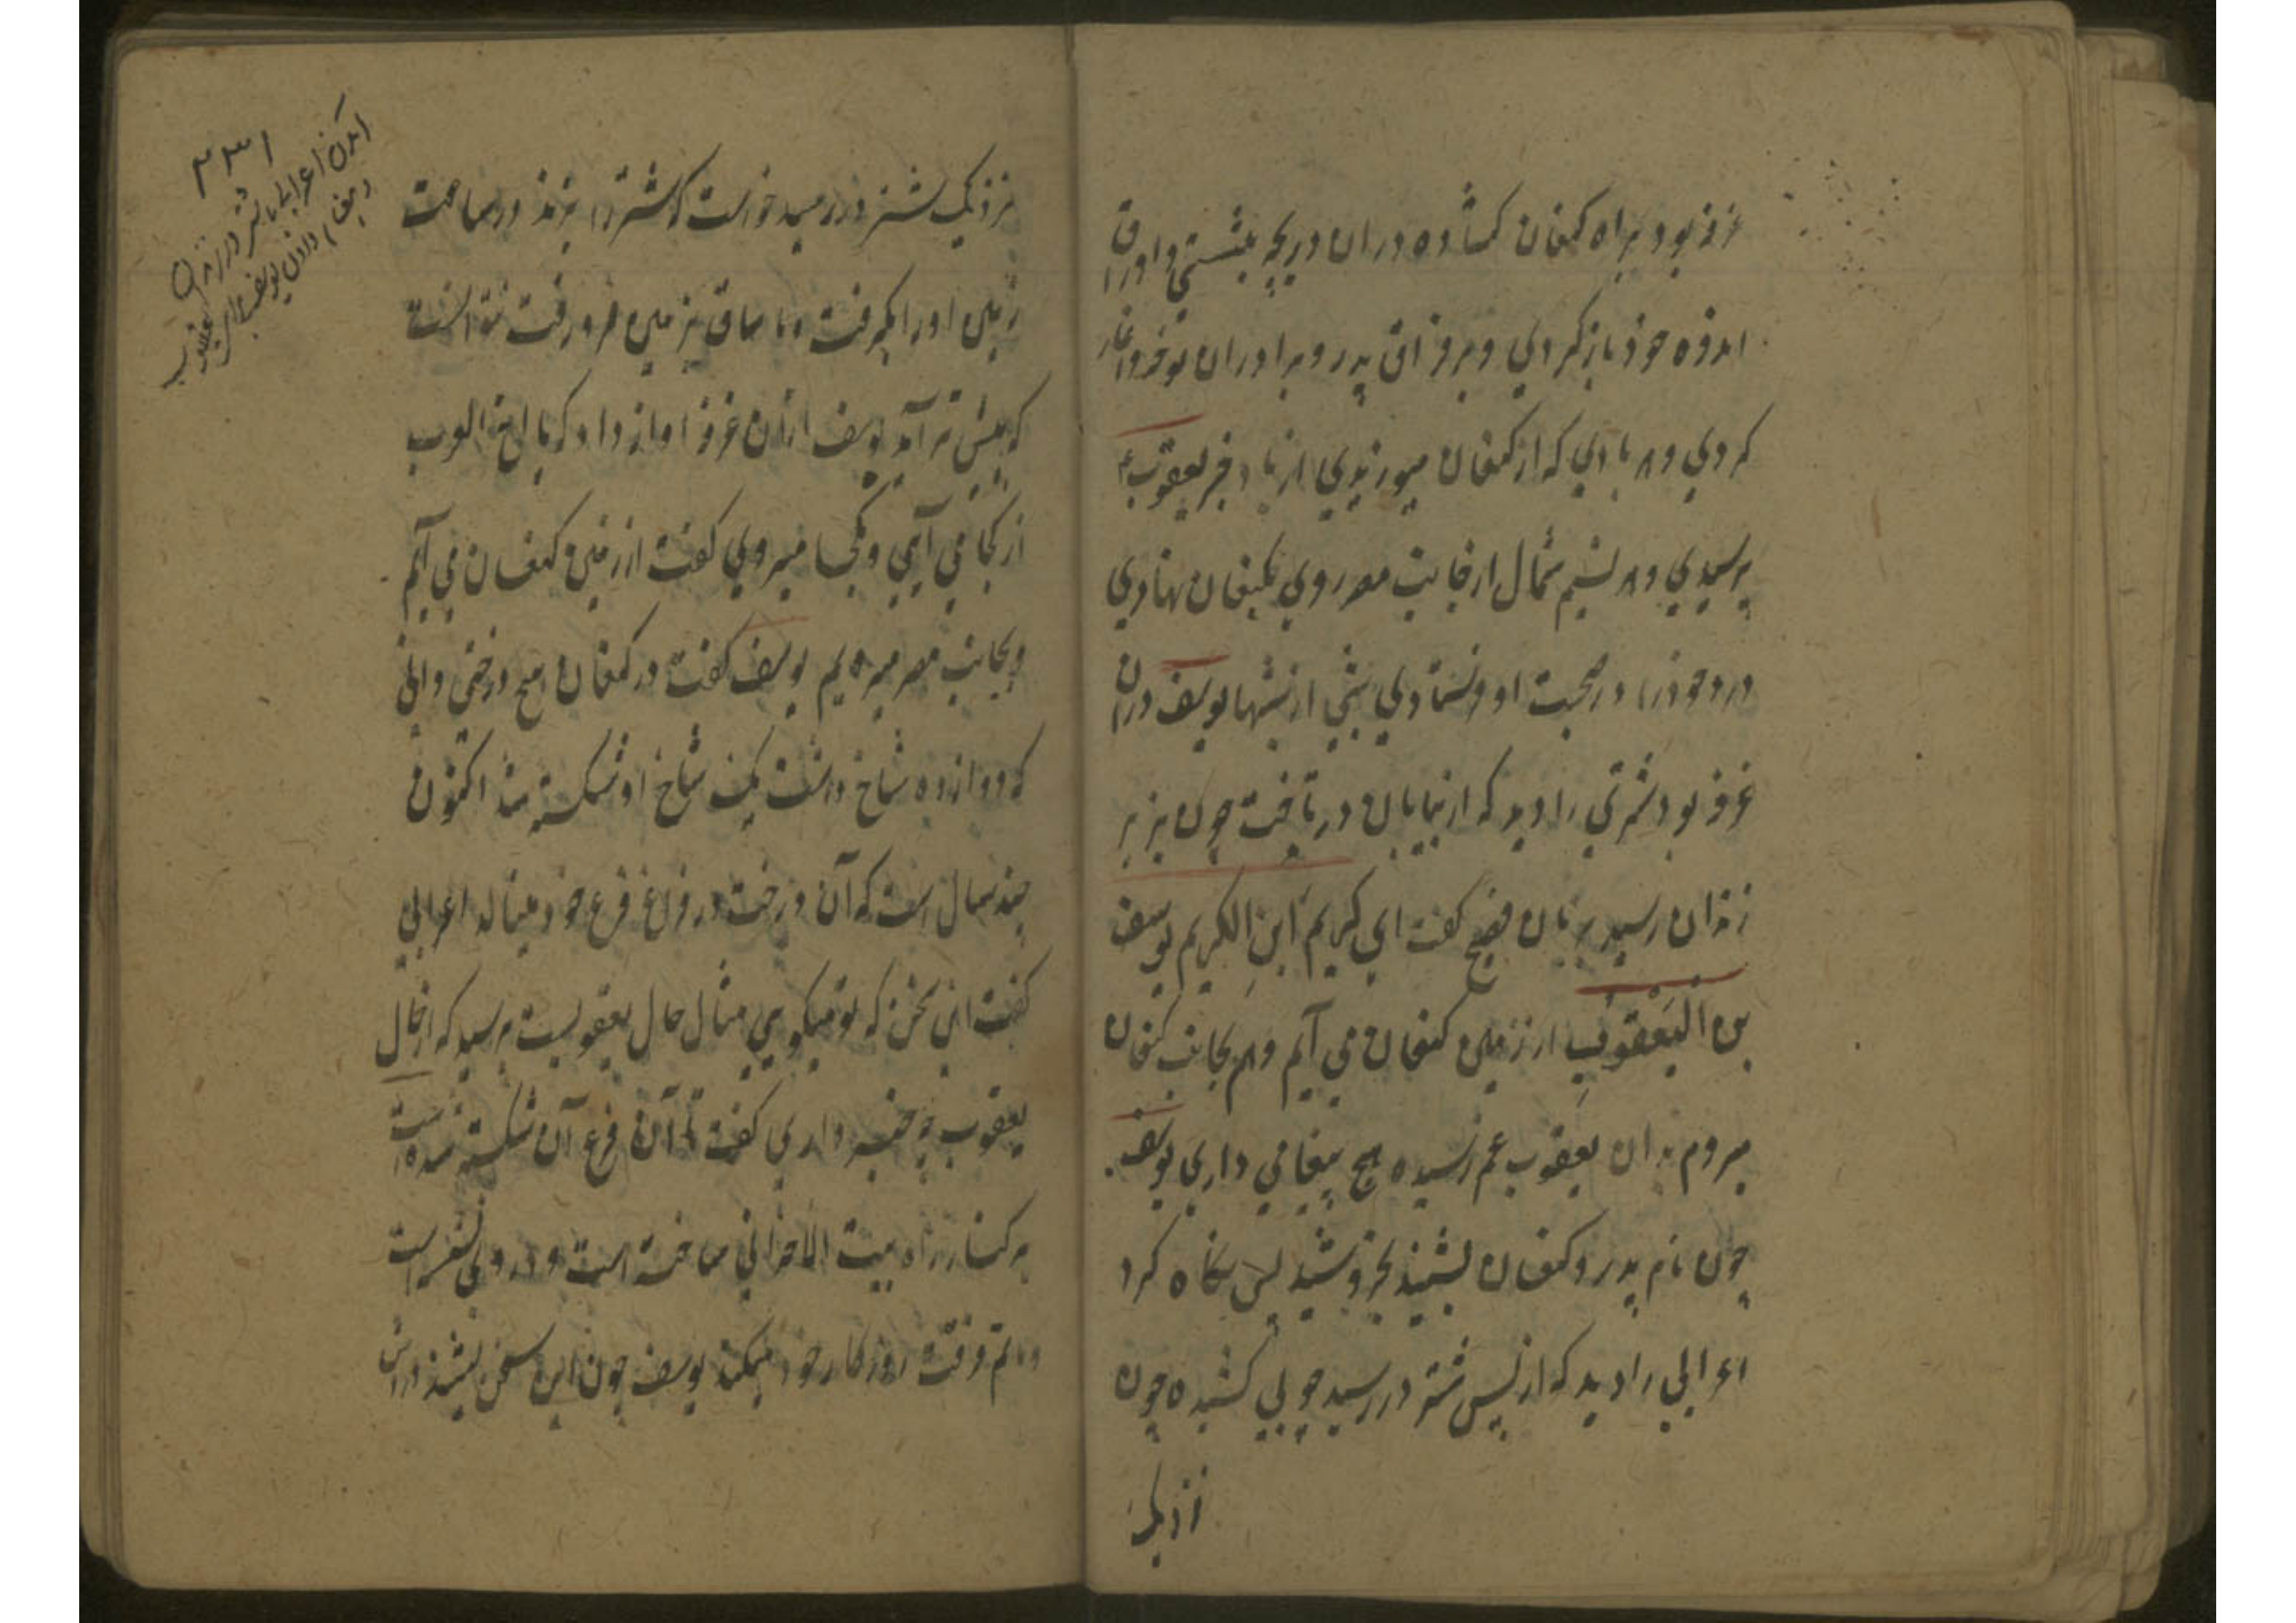 غرفه بود براه کنعان کشاده دران دریچه بنشستی و اوراق
اندوه خود باز کردی و بر فراق پدر و برادران نوحه و آغاز
کردی و هر بادی که از کنعان میوزیدی از باد خبر یعقوب ع
پرسیدی و هر نسیم شمال از جانب مصر روی بکنعان نهادی
درد خود را در صحبت او فرستادی شبی از شبها یوسف دران
غرفه بود شتری را دید که از بیابان در تاخت چون بزیر
زندان رسید بزبان فصیح کفت ای کریم ابن الکریم یوسف
بن الیعقوب از زمین کنعان می آیم و هم بجانب کنعان
میروم بدان یعقوب غم رسیده هیچ پیغامی داری یوسف
چون نام پدر و کنعان بشنید بخروشید پس نکاه کرد
اعرابی را دید که از پس شتر در رسید چوبی کشیده چون
نزدیک
نزدیک شتر در رسید خواست که شتر را بزند در ساعت
زمین او را بکرفت و تا ساق بزمین فرو رفت نتوانست
که پیش تر آمد یوسف ازان غرفه اواز داد که یا اخ العرب
از کجا می آیی و کجا میروی کفت از زمین کنعان می آیم
و بجانب مصر میروم یوسف کفت در کنعان هیچ درختی دانی
که دوازده شاخ داشت یک شاخ او شکسته شد اکنون
چند سال است که آن درخت در فراغ فرع خود مینالد اعرابی
کفت این سخن که تو میکویی مثال حال یعقوبست پرسید که از حال
یعقوب چه خبر داری کفت تا آن فرع آن شکسته شده است
بر کنار راه بیت الاحزانی ساخته است و در وی نشسته است
و ماتم وقت روزکار خود میکند یوسف چون این سخن بشنید دران
۳۳۱
آمدن اعرابی با شتر در زندان
و پیغام دادن یوسف علیه السلام بیعقوب